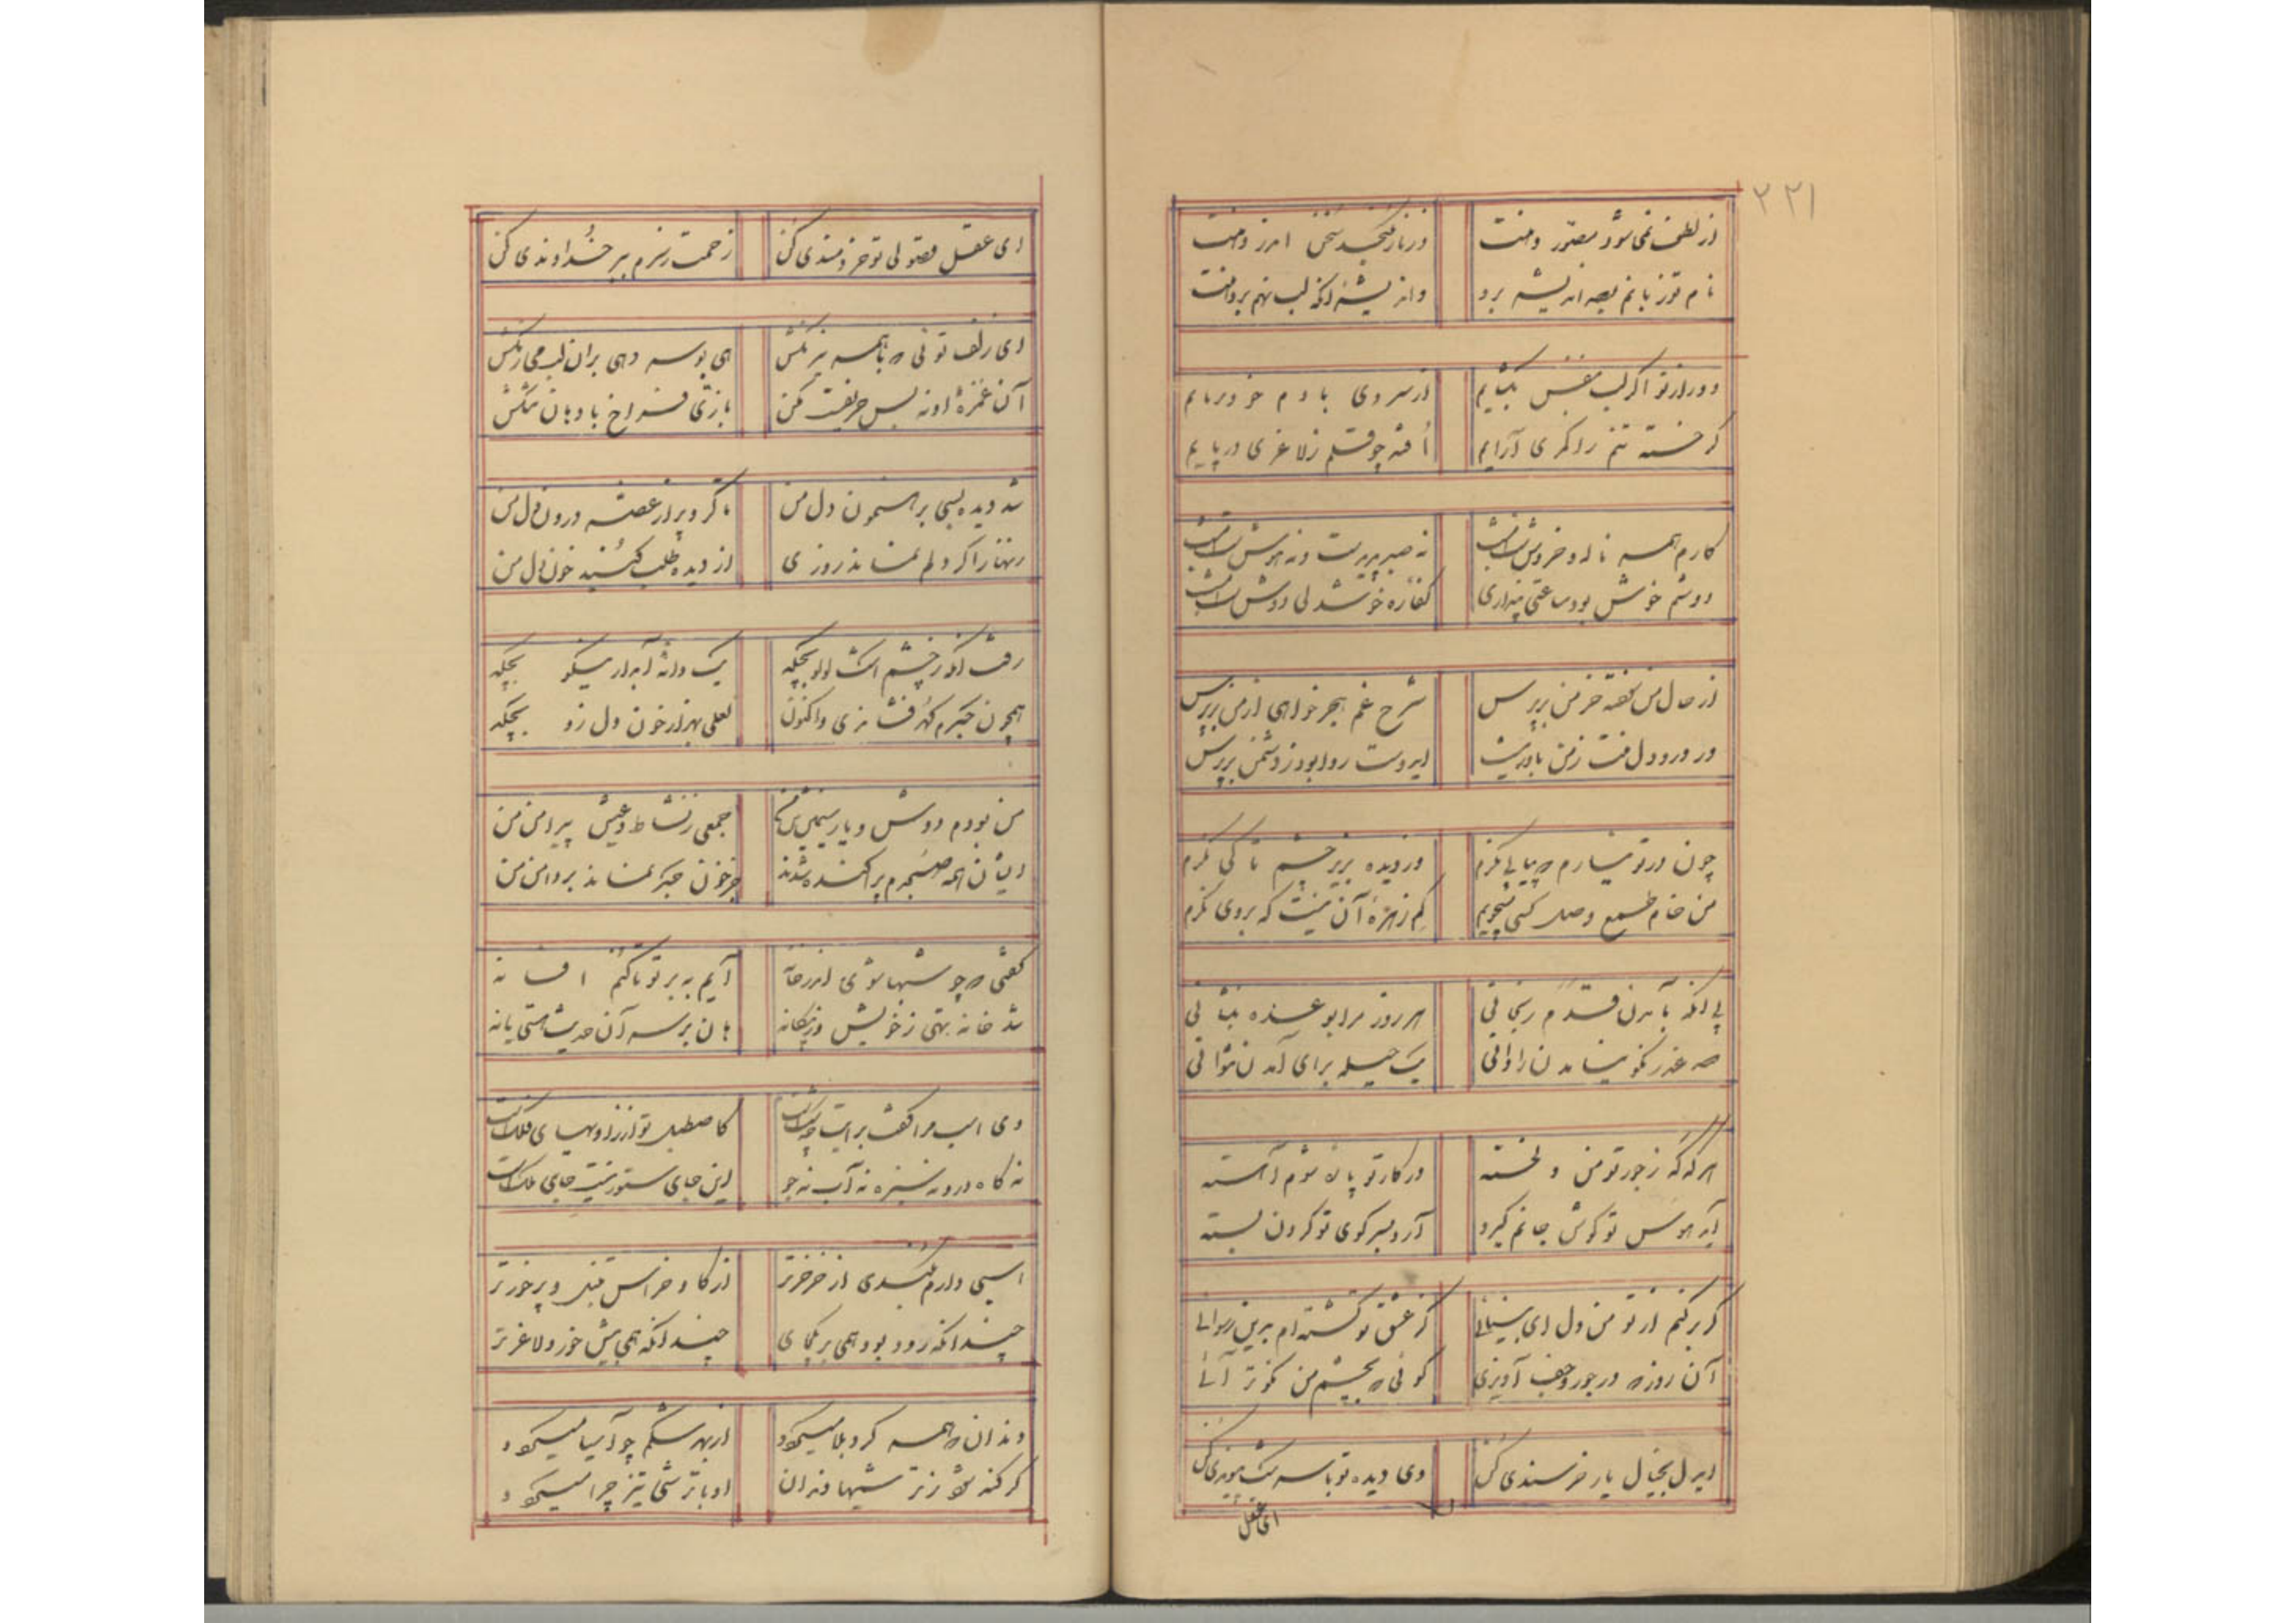 ۲۲۱
از لطف نمی شود مصور دهنت در ناز نگنجد سخن اندر دهنت
نام تو زبانم بصد اندیشه برد و اندیشه آنکه لب نهم بر دهنت
دور از تو اگر لب بنفس بگشایم از سردی با دم خود برنایم
گر خسته تنم را گهری آرایم افتد چو قلم ز لاغری در پایم
کارم همه ناله و خروشست امشب نه صبر پدیدست و نه هوشست امشب
دوشم خوش بود ساعتی پنداری کفاره خوشدلی دوشست امشب
از حال من نخفته خرمن بپرس شرح غم هجر خواهی از من بپرس
ور درد دل منت ز من باور نیست ایدوست روا بود ز دشمن بپرس
چون در تو نیارم که پیاپی نگرم دزدیده بزیر چشم تا کی نگرم
من خام طمع وصل کسی میجویم کم زهره آن نیست که بروی نگرم
بی آنکه بآمدن قدم رنجانی هر روز مرا بوعده بنشانی
صد عذر نکو نیامدن را دانی یک حیله برای آمدن نتوانی
هر گه که ز جور تو من دلخسته در کار تو پا نشوم آهسته
آید هوس تو گوش جانم گیرد آرد بسر کوی تو گردن بسته
گر برکنم از تو من دل ای بینائی کز عشق تو گشته ام بدین رسوائی
آن روز که در جور و جفا آویزی گوئی که بچشم من نکوتر آئی
ایدل بخیال یار خرسندی کن وی دیده تو با سرشک پیوندی کن
ای عقل
ای عقل فضولی تو خردمندی کن زحمت ز برم ببر خداوندی کن
ای زلف تو نی که با همه نیرنگش می بوسه دهی بران لب می رنگش
آن غمزه او نه بس حریفست مکن بازی فراخ با دهان تنگش
شد دیده بسی برهنمون دل من تا کرد پر از غصه درون دل من
زنهار اگر دلم نماند روزی از دیده طلب کنید خون دل من
رفت آنکه ز چشم اشک لولو بچکد یک دانه آبدار نیکو بچکد
همچون جگرم گهر فشاندی و اکنون لعلی بهزار خون دل زو بچکد
من بودم دوش و یار سیمین تن من جمعی ز نشاط و عیش پیرامن من
ایشان همه صبحدم پراکنده شدند جز خون جگر نماند بر دامن من
گفتی که چو شبها شوی اندر خانه آیم به بر تو تا کنم افسانه
شد خانه تهی ز خویش و ز بیگانه هان بر سر آن حدیث هستی یا نه
دی اسب مرا گفت برایت چه شکست کاصطبل تو از زاویهای فلکست
نه کاه درو نه سبزه نه آب نه جو این جای ستور نیست جای ملکست
اسبی دارم کندی از خر خرتر از گاو خراس تنبل و پرخورتر
چندانکه رود بود همی بر یک جای چندانکه همی بیش خورد لاغرتر
دندان که همه گرد بلا میگردد از بهر شکم چو آسیا میگردد
گر کند شود ز ترشیها دندان او با ترشی تیز چرا میگردد